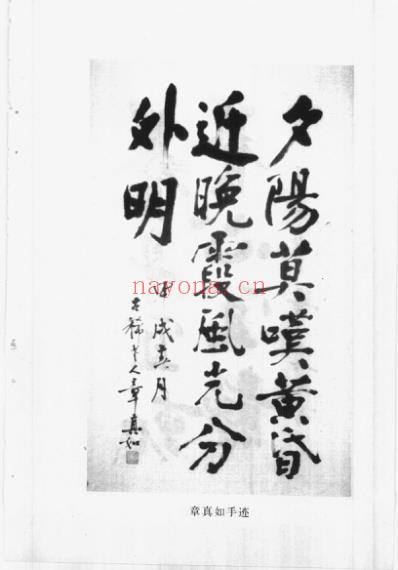 夕陽莫嘆黃昏
近晚霞風光分
外明
戌 月
古稀老人章真如
nayona.cn
章真如手迹